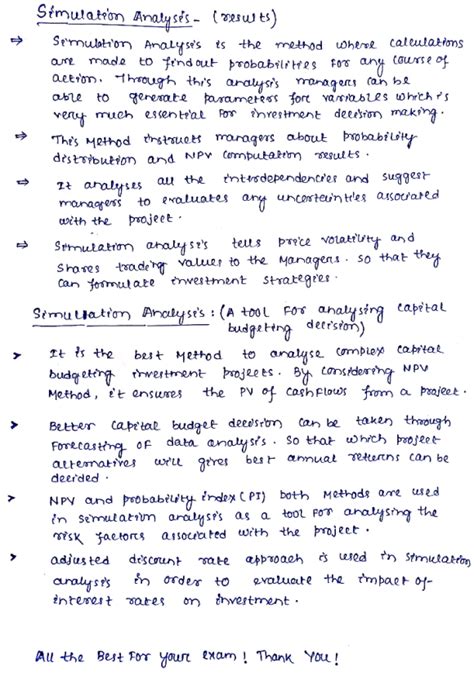 Simulation Analysis - (results)
⇒ Simulation Analysis is the method where calculations
are made to findout probabilities for any course of
action. Through this analysis managers can be
able to generate parameters for variables which is
very much essential for investment decision making.
⇒ This Method instructs managers about probability
distribution and NPV computation results.
⇒ It analyses all the interdependencies and suggest
managers to evaluates any uncertainties associated
with the project.
⇒ Simulation analysis tells price volatility and
Shares trading values to the Managers. So that they
can formulate investment strategies.
Simulation Analysis: (A tool for analysing capital
budgeting decision)
> It is the best Method to analyse complex capital
budgeting investment projects. By considering NPV
Method, it ensures the PV of cashflows from a project.
> Better capital budget decision can be taken through
Forecasting of data analysis. So that which project
alternatives will gives best annual returns can be
decided.
> NPV and probability index (PI) both Methods are used
in simulation analysis as a tool for analysing the
risk factors associated with the project.
> adjusted discount rate approach is used in simulation
analysis in order to evaluate the impact of-
interest rates on investment.
All the Best For your exam! Thank You!